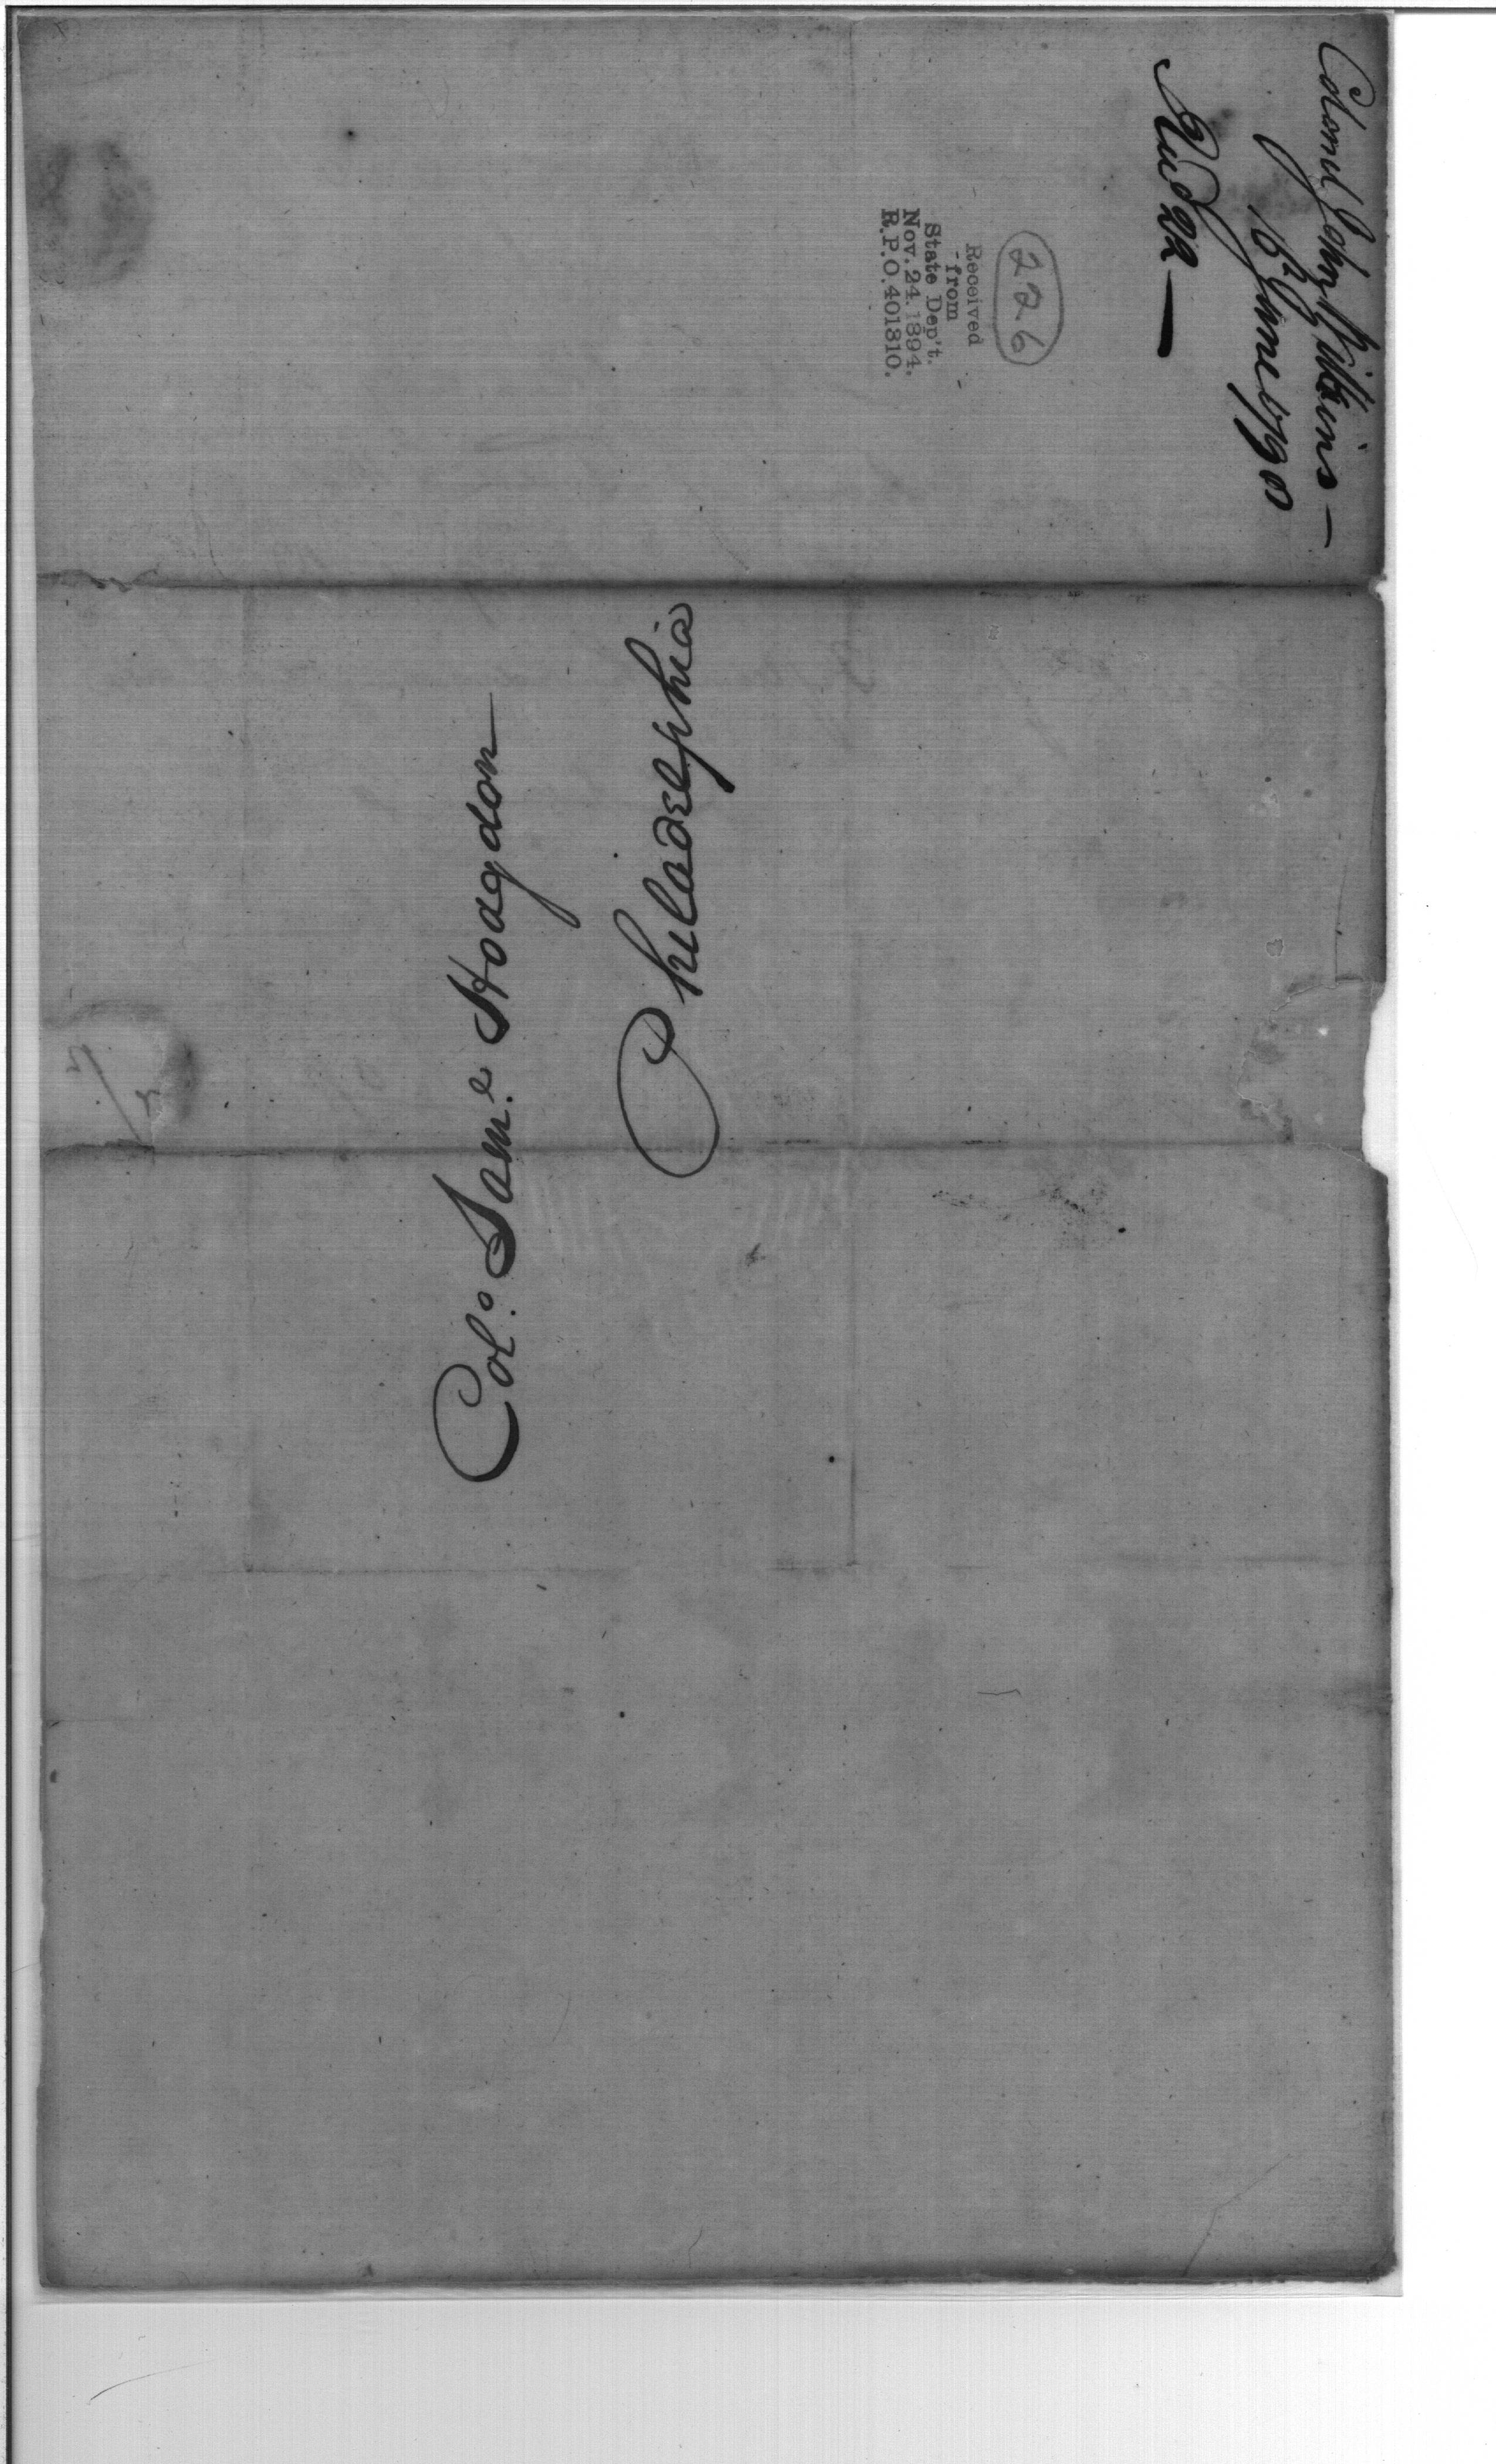 Colonel John Wilkins —
16 June 1790
Recd 22 —
226
Received
from
State Dep't.
Nov. 24. 1894.
R.P.O. 401310.
Col.o Sam.l Hodgdon
Philadelphia